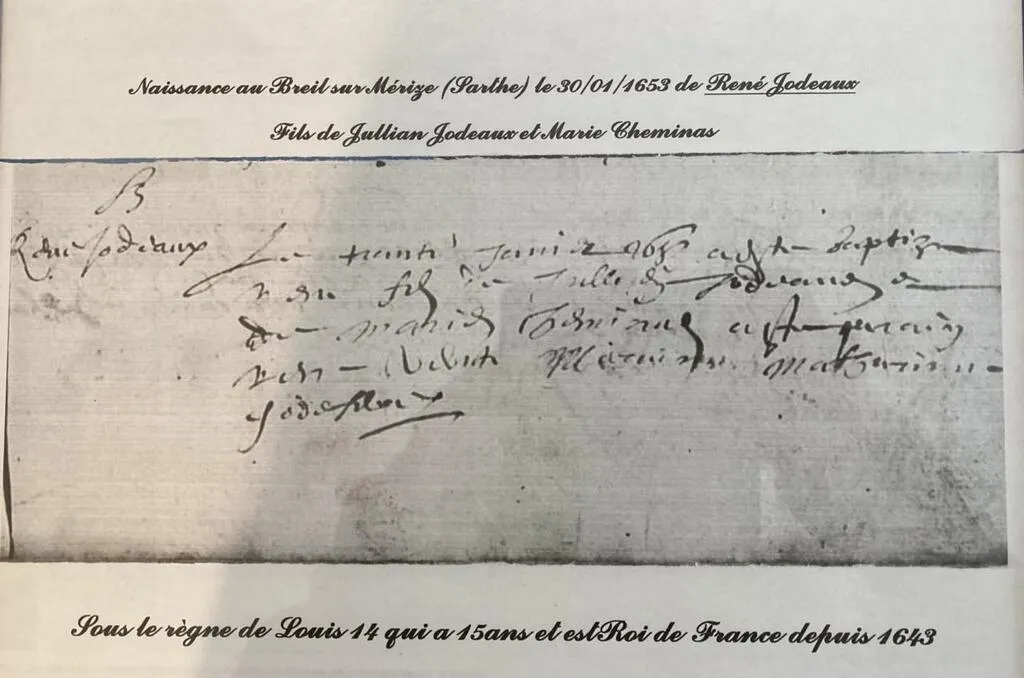 Naissance au Breil sur Mérize (Sarthe) le 30/01/1653 de René Jodeaux
Fils de Jullian Jodeaux et Marie Cheminas
B
Rene Jodeaux
Le trante Janvier a este baptize
rene filz de Jullian Jodeaux
de marie Cheminas a este parain
rene maraine mathurine
Sous le règne de Louis 14 qui a 15ans et est Roi de France depuis 1643